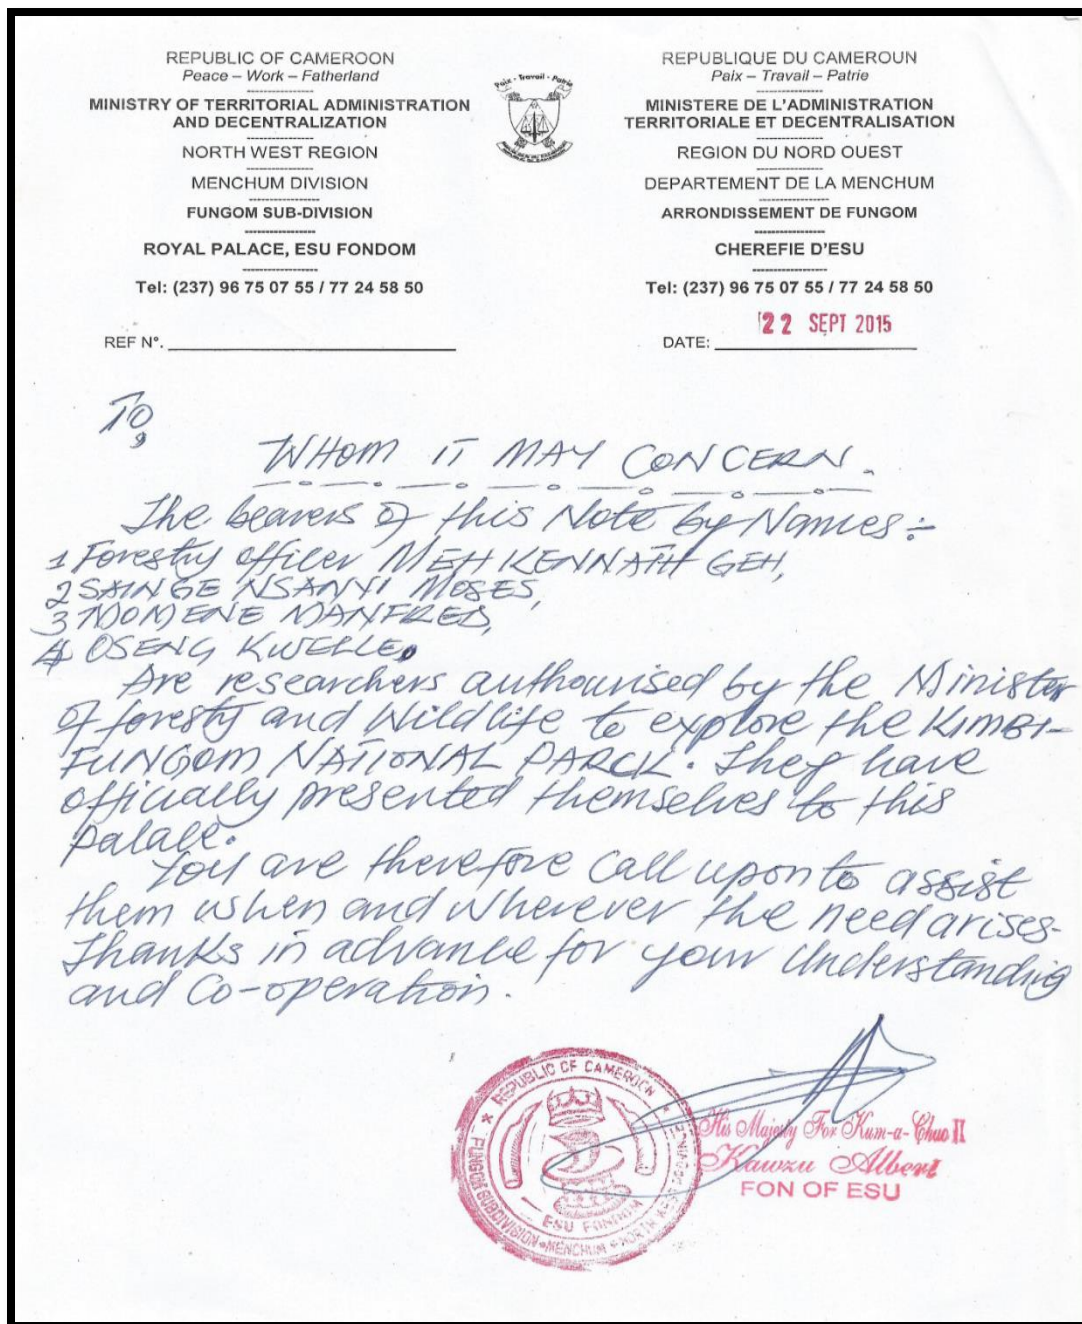 REPUBLIC OF CAMEROON
Peace – Work – Fatherland
MINISTRY OF TERRITORIAL ADMINISTRATION
AND DECENTRALIZATION
NORTH WEST REGION
MENCHUM DIVISION
FUNGOM SUB-DIVISION
ROYAL PALACE, ESU FONDOM
Tel: (237) 96 75 07 55 / 77 24 58 50
REF N°.
Paix - Travail - Patrie
REPUBLIQUE DU CAMEROUN
Paix – Travail – Patrie
MINISTERE DE L'ADMINISTRATION
TERRITORIALE ET DECENTRALISATION
REGION DU NORD OUEST
DEPARTEMENT DE LA MENCHUM
ARRONDISSEMENT DE FUNGOM
CHEREFIE D'ESU
Tel: (237) 96 75 07 55 / 77 24 58 50
22 SEPT 2015
DATE:
TO,
WHOM IT MAY CONCERN.
The bearers of this Note by Names:-
1 Forestry officer MEH KENNATH GEH,
2 SAINGE NSANYI MOSES,
3 MOMENE MANFRED,
4 OSENG KWELLE.
Are researchers authourised by the Minister
of foresty and Wildlife to explore the KIMBI-
FUNGOM NATIONAL PARCK. They have
officially presented themselves to this
palace.
You are therefore call upon to assist
them when and wherever the need arises.
Thanks in advance for your Understanding
and Co-operation.
REPUBLIC OF CAMEROON
FUNGOM SUBDIVISION - MENCHUM - NORTH
ESU FONDOM
His Majesty Fon Kum-a-Chuo II
Kawzu Albert
FON OF ESU